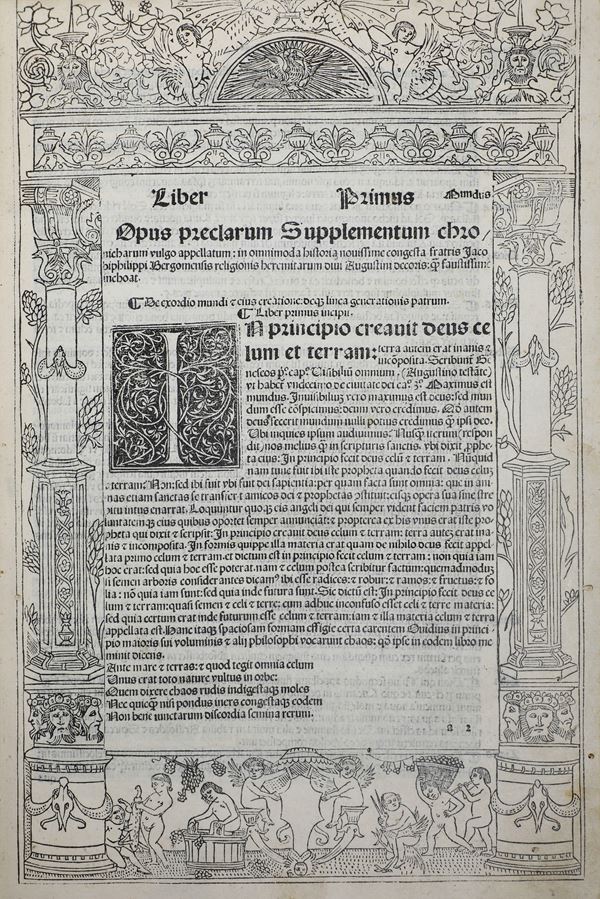 Liber Primus Mundus
Opus preclarum Supplementum chro/
nicharum vulgo appellatum: in omnimoda historia nouissime congesta fratris Jaco
biphilippi Bergomensis religionis heremitarum diui Augustini decoris: q̃ faustissime
inchoat.
¶ De exordio mundi ⁊ eius creatione: deq̃ linea generationis patrum.
¶ Liber primus incipit.
IN principio creauit deus ce
lum et terram: terra autem erat inanis ⁊
incõposita. Scribunt
Geneseos Uisibiliũ omnium, (Augustino testãte)
vt habet vndecimo de ciuitate dei Maximus est
mundus. Inuisibiliuz vero maximus est deus: sed mun
dum esse cõspicimus: deum vero credimus. Nõ autem
deus fecerit mundum nulli potius credimus q̃ ipsi deo.
Ubi inquies ipsum audiuimus: Nusq̃ iterum (respon
dit) nos melius q̃ in scripturis sanctis. vbi dixit ,pphe
ta eius: In principio fecit deus celũ ⁊ terram. Nũquid
nam tunc fuit ibi iste propheta quando fecit deus celuz
⁊ terram: Non: sed ibi fuit vbi fuit dei sapientia: per quam facta sunt omnia: que in ani
mas etiam sanctas se transfert ⁊ amicos dei ⁊ prophetas ↄstituit: eisq̃ opera sua sine stre
pitu intus enarrat. Loquuntur quoq̃ eis angeli dei qui semper vident faciem patris vo
luntatemq̃ eius quibus oportet semper annunciãt: ⁊ propterea ex his vnus erat iste pro
pheta qui dixit ⁊ scripsit: In principio fecit deus celum ⁊ terram: terra autez erat ina
nis ⁊ incomposita. In formis quippe illa materia erat quam de nihilo deus fecit appel
lata primo celum ⁊ terram. et dictum est in principio fecit celum ⁊ terram: non quia iam
hoc erat: sed quia hoc esse poterat. nam ⁊ celum postea scribitur factum: quemadmoduz
si semen arboris considerantes dicam⁹ ibi esse radices: ⁊ robur: ⁊ ramos: ⁊ fructus: ⁊ fo
lia: nõ quia iam sunt: sed quia inde futura sunt. Sic dictũ est: In principio fecit deus ce
lum ⁊ terram: quasi semen ⁊ celi ⁊ terre: cum adhuc inconfuso esset celi ⁊ terre materia:
sed quia certum erat inde futurum esse celum ⁊ terram: iam ⁊ illa materia celum ⁊ terra
appellata est. Hanc itaq̃ spaciosam formam effigie certa carentem Ouidius in princi
pio maioris sui voluminis ⁊ alij philosophi vocarunt chaos: qd̃ ipse in eodem libro me
minit dicens.
Ante mare ⁊ terras: ⁊ quod tegit omnia celum
Unus erat toto nature vultus in orbe:
Quem dixere chaos rudis indigestaq̃ moles
Nec quicq̃ nisi pondus iners congestaq̃ eodem
Non bene iunctarum discordia semina rerum.
a 2